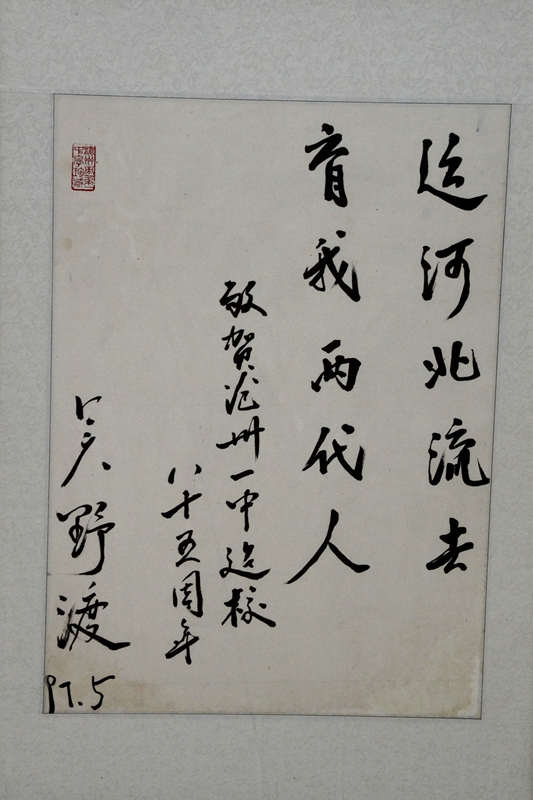 运河北流去
育我两代人
敬贺沧州一中建校
八十五周年
吴野渡
97.5